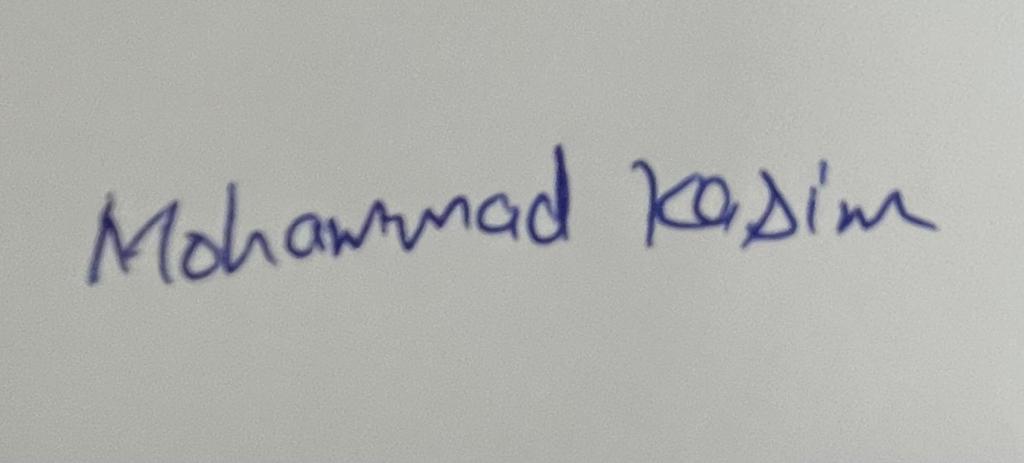 Mohammad Kasim